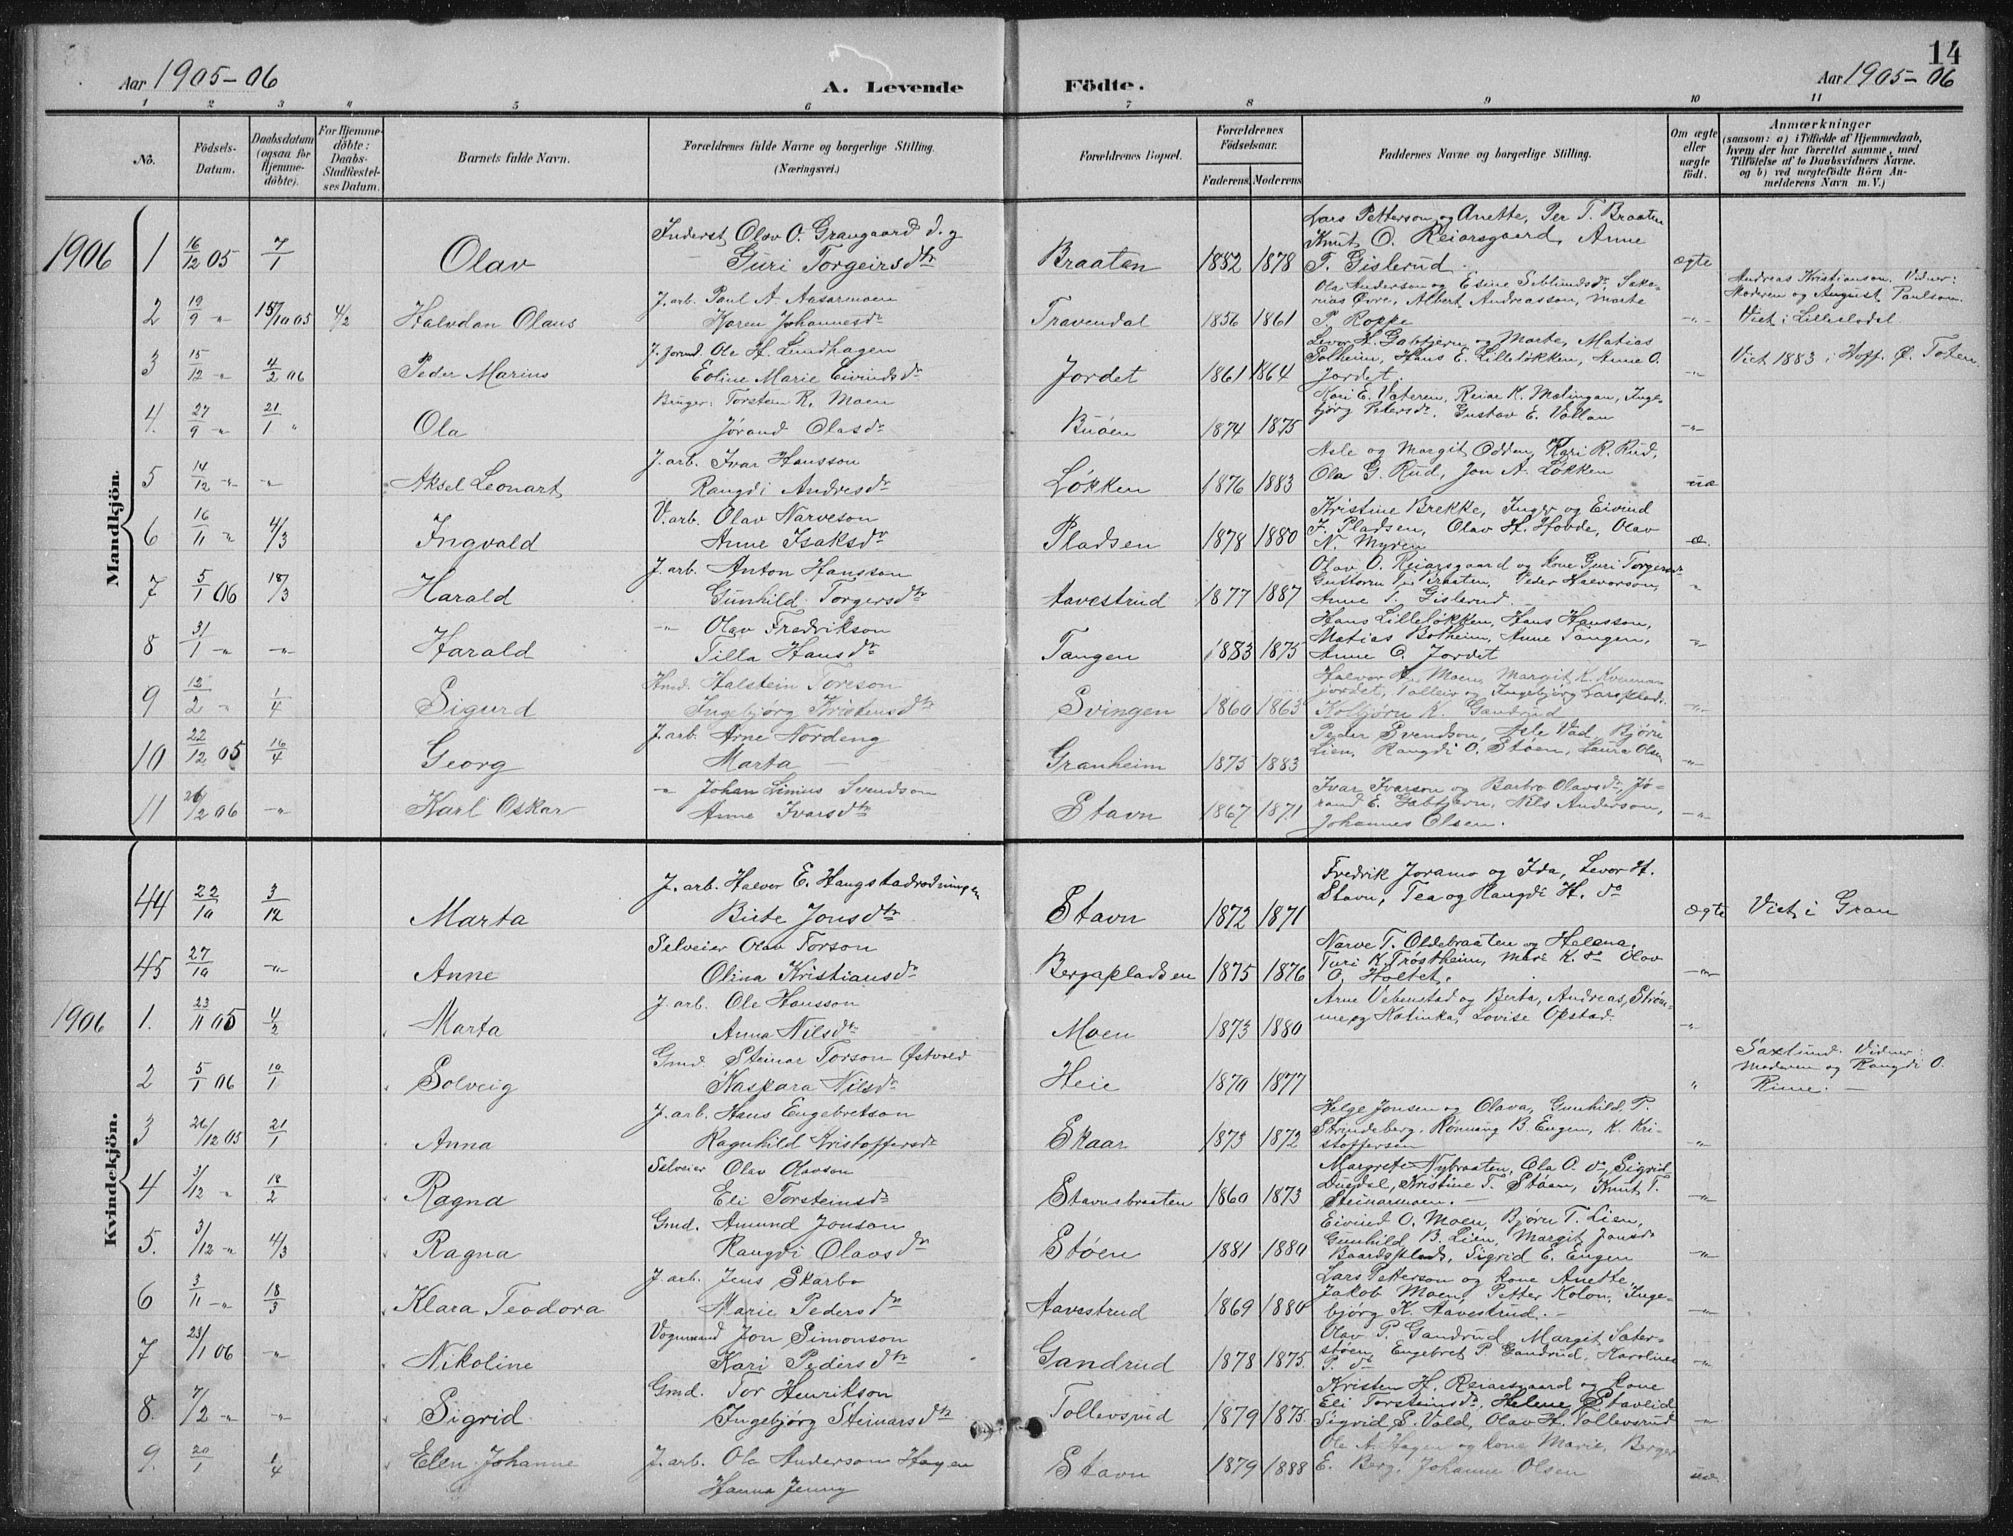 14
Aar 1905-06 A. Levende Födte. Aar 1905-06
1 2 3 4 5 6 7 8 9 10 11
No.
Födsels-
Datum.
Daabsdatum
(ogsaa for
Hjemme-
döbte).
For Hjemme-
döbte:
Daabs-
Stadfæstel-
ses Datum.
Barnets fulde Navn.
Forældrenes fulde Navne og borgerlige Stilling.
(Næringsvei.)
Forældrenes Bopæl.
Forældrenes
Födselsaar.
Faderens. Moderens.
Faddernes Navne og borgerlige Stilling.
Om ægte
eller
uægte
födt.
Anmærkninger
(saasom: a) i Tilfælde af Hjemmedaab,
hvem der har forrettet samme, med
Tilföielse af to Daabsvidners Navne.
og b) ved uægtefödte Börn An-
melderens Navn m. V.)
Mandkjön.
1906 1 16/12 05 7/1 Olav
Inderst Olav O. Grangaard d. y
Guri Torgeirsdtr
Braaten 1882 1878
Lars Petterson og Anette, Per T. Braaten
Knut O. Reiarsgaard, Anne
T. Gislerud
ægte
2 19/9 " 15/10 05 4/2 Halvdan Olaus
J. arb. Paul A. Aasarmoen
Karen Johannesdr
Travendal 1856 1861
Ola Anderson og Esine Siblundsdr, Saka-
rias Øvre, Albert Andreasson, Marte
P. Roppe
"
Andreas Kristianson. Vidner:
Moderen og August Paulson.
Viet i Lilleelvdal.
3 15/12 " 4/2 06 Peder Marius
J. forml. Ole H. Lundhagen
Eoline Marie Eivindsdr
Jordet 1861 1864
Levor H. Gabtjern og Marte, Matias
Solheim, Hans E. Lilleløkken, Anne O.
Jordet
"
Viet 1883 i Hoff, Ø. Toten
4. 27/9 " 21/1 " Ola
Bruger: Torsten R. Moen
Jørand Olasdr
Buøen 1874 1875
Kari E. Vateren, Reiar K. Mælingan, Inge-
bjørg Petersdr. Gustav E. Vallan
"
5 14/12 " " Aksel Leonart
J. arb. Ivar Hansson
Rangdi Andresdr
Løkken 1876 1883
Asle og Margit Odden, Kari R. Rud,
Ola G. Rud, Jon A. Løkken
uæ
6 16/11 " 4/3 Ingvald
V. arb. Olav Narveson
Anne Isaksdr
Pladsen 1878 1880
Kristine Brekke, Inger og Eivind
J. Pladsen, Olav H. Hovde, Olav
N. Myren
æ.
7 5/1 06 18/3 Harald
J. arb. Anton Hansson
Gunhild Torgersdtr
Aavestrud 1877 1887
Olav O. Reiarsgaard og kone Guri Torgersdr
Guttorm T. Braaten, Peder Halvorson,
Anne T. Gislerud
"
8 31/1 " " Harald
" Olav Fredrikson
Tilla Hansdr
Tangen 1883 1875
Hans Lilleløkken, Hans Hansson,
Matias Bolheim, Anne Tangen,
Anne O. Jordet
"
9 12/2 " 1/4 Sigurd
Hmd. Halstein Toreson
Ingebjørg Kristensdtr
Svingen 1860 1863
Halvor H. Moen, Margit K. Kvenna-
jordet, Tolleiv og Ingebjørg Larspladn.
Kolbjørn K. Gandrud
"
10 22/12 05 16/4 Georg
J. arb. Arne Nordeng
Marta —
Granheim 1875 1883
Peder Svendson, Asle Vad, Bjørn
Lien, Rangdi O. Støen, Laura Olsen
"
11 26/2 06 " Karl Oskar
" Johan Linius Svendson
Anne Ivarsdtr
Stavn 1867 1871
Ivar Ivarson og Barbro Olavsdr, Jø-
rand E. Gabtjern, Nils Anderson,
Johannes Olsen.
"
Kvindekjön.
44 22/10 3/12 Marta
J. arb. Halvor E. Haugstadrodningen
Birte Jonsdtr
Stavn 1872 1871
Fredrik Joramo og Ida, Levor H.
Stavn, Tea og Rangdi H. do
ægte Viet i Gran
45 27/10 " Anne
Selveier Olav Torson
Olina Kristiansdr
Bergapladsen 1875 1876
Narve T. Oldebraaten og Helena.
Turi K. Trøstheim, Mari K. do Olav
O. Holtet.
"
1906 1. 23/11 05 4/2 Marta
J. arb. Ole Hansson
Anna Nilsdtr
Moen 1873 1880
Arne Vebenstad og Berta, Andreas Strøm-
me og Katinka, Lovise Opstad
"
2 5/1 06 10/1 Solveig
Gmd. Steinar Torson Østvold
Kaspara Nilsdr
Heie 1870 1877
"
Saxlund. Vidner:
Moderen og Rangdi O.
Rime. —
3 26/12 05 21/1 Anna
J. arb. Hans Engebretson
Ragnhild Kristoffersdr
Skaar 1873 1872
Helge Jonsen og Olava, Gunhild T.
Strandeberg, Rønnaug B. Eugen, K. Kri-
stoffersen
"
4 3/12 " 18/2 Ragna
Selveier Olav Olavson
Eli Torsteinsdr
Stavnsbraaten 1860 1873
Margrete Nybraaten, Ola O. do, Sigrid
Dugdal, Kristine T. Støen, Knut T.
Steinarmoen. —
"
5. 3/12 " 4/3 Ragna
Gmd. Amund Jonson
Rangdi Olavsdr
Støen 1881 1880
Eivind O. Moen, Bjørn T. Lien,
Gunhild B. Lien, Margit Jonsdr
Baardsplads, Sigrid E. Eugen
"
6 3/11 " 18/3 Klara Teodora
J. arb. Jens Skarbo
Marie Pedersdr
Aavestrud 1869 1880
Lars Petterson og kone Anette,
Jakob Moen, Petter Kolon, Inge-
bjørg K. Aavestrud. —
"
7 23/1 06 " Nikoline
Vognmand Jon Simonson
Kari Pedersdtr
Gandrud 1878 1875
Olav P. Gandrud, Margit Sater-
støen, Engebret P. Gandrud, Karoline
P. do
"
8. 7/2 " " Sigrid
Gmd. Tor Henrikson
Ingebjørg Steinarsdtr
Tollevsrud 1879 1875
Kristen H. Reiarsgaard og kone
Eli Torsteinsdr, Helene Stavlid
Sigrid S. Vold, Olav H. Tollevsrud
"
9. 20/1 1/4 Elen Johanne
J. arb. Ola Anderson Hagen
Hanna Jenny
Stavn 1879 1888
Ole A. Hagen og kone Marie, Berger
E. Berg, Johanne Olsen
uæ.